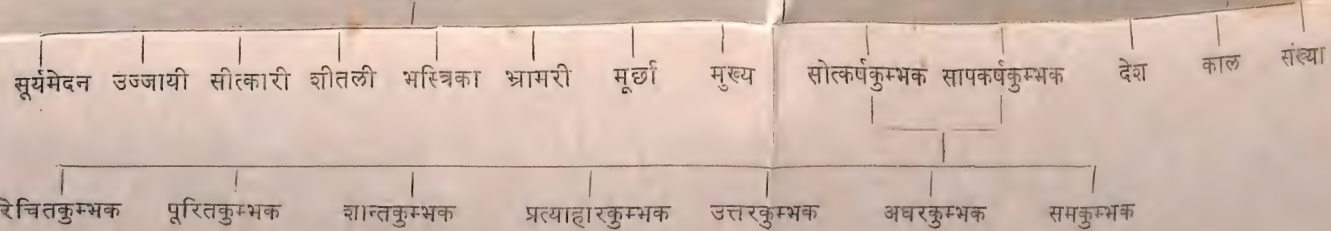 सूर्यमेदन उज्जायी सीत्कारी शीतली भस्त्रिका भ्रामरी मूर्छा मुख्य सोत्कर्षकुम्भक सापकर्षकुम्भक देश काल संख्या
रेचितकुम्भक पूरितकुम्भक शान्तकुम्भक प्रत्याहारकुम्भक उत्तरकुम्भक अधरकुम्भक समकुम्भक